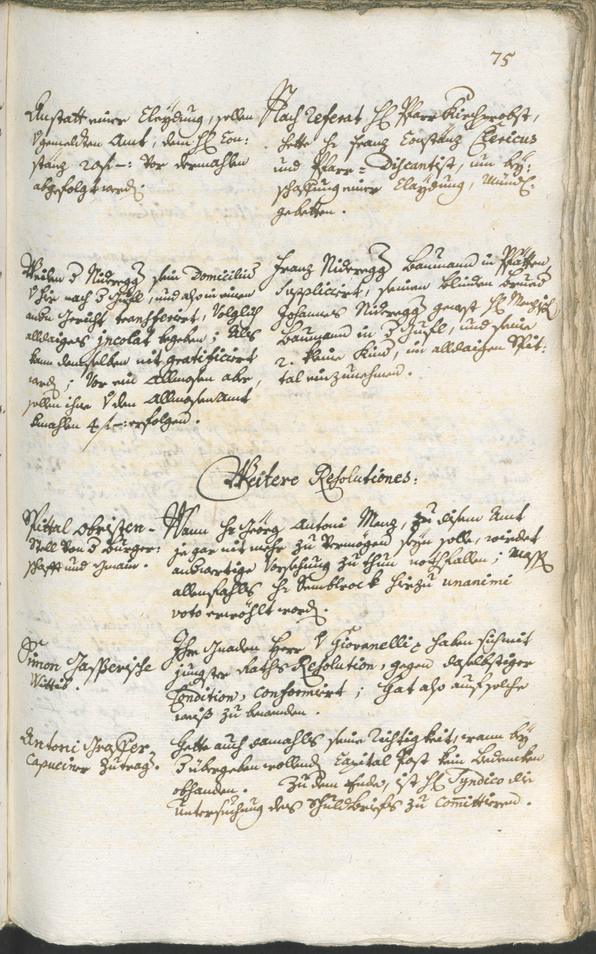 75
Anstatt einer Claydung, sollen
gemeldten Amt, dem H: Con:
stanz 20 f –: vor dermahlen
abgefolgt werdn.
Nach Referat H: Pfarr Kirchprobst,
hette Hr Franz Constanz Clericus
und Pfarr = Discantist, um bey:
schaffung einer Claydung, mündl:
gebetten.
Weilen d Nideregg sein Domicilium
hie nach d Insl, und also in einen
andn Gericht transferirt, folglich
alldaiges incolat begeben; Als
kann demselben nit gratificirt
werdn; Vor ein Allmosen aber,
sollen ihme den Allmosen Amt
4 f –: erfolgen.
Franz Nideregg Baumann in
supplicirt, seinen blinden Bruedr
Johannes Nideregg gewest H:
Baumann in d, und seine
2. kleine Kind, in alldaigen Spit:
tal einzunemen.
Weitere Resolutiones:
Spittal obristen-
Stell von d Burger:
schafft und
Wann Hr Jörg Antoni Manz, zu disem Amt
je gar nit mehr zu vermögen seyn solle, wurdet
anderwärtige Vorsehung zu thun nothfallen;
allenfahls Hr Semblrock hierzu unanimi
voto erwöhlt word.
Simon Jasserische
Wittib.
Ihr Gnaden Herr v Giovanelli haben sich mit
jüngster Raths Resolution, gegen daselbstiger
Condition, conformirt; hat also auf solche
weiß zu bewenden.
Antoni Grasser
Capuciner Zutrag.
Hette auch damahls seine Richtigkeit, wann bey
d übergeben wollend Capital Post kein Bedencken
obhanden. Zu dem Ende, ist H: Syndico die
Untersuchung des Schuldbriefs zu committiren.